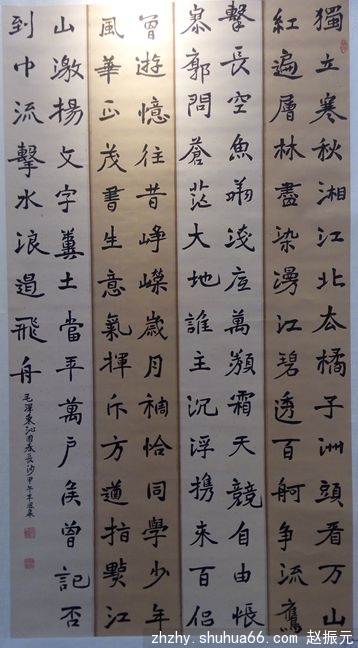 獨立寒秋湘江北去橘子洲頭看万山
紅遍層林盡染漫江碧透百舸争流鷹
擊長空魚翔淺底萬類霜天競自由悵
寥廓問蒼茫大地誰主沉浮携來百侣
曾遊憶往昔崢嶸歲月稠恰同學少年
風華正茂書生意氣揮斥方遒指點江
山激揚文字糞土當年萬户侯曾記否
到中流擊水浪遏飛舟
毛澤東沁園春長沙甲午
zhzhy.shuhua66.com 赵振元